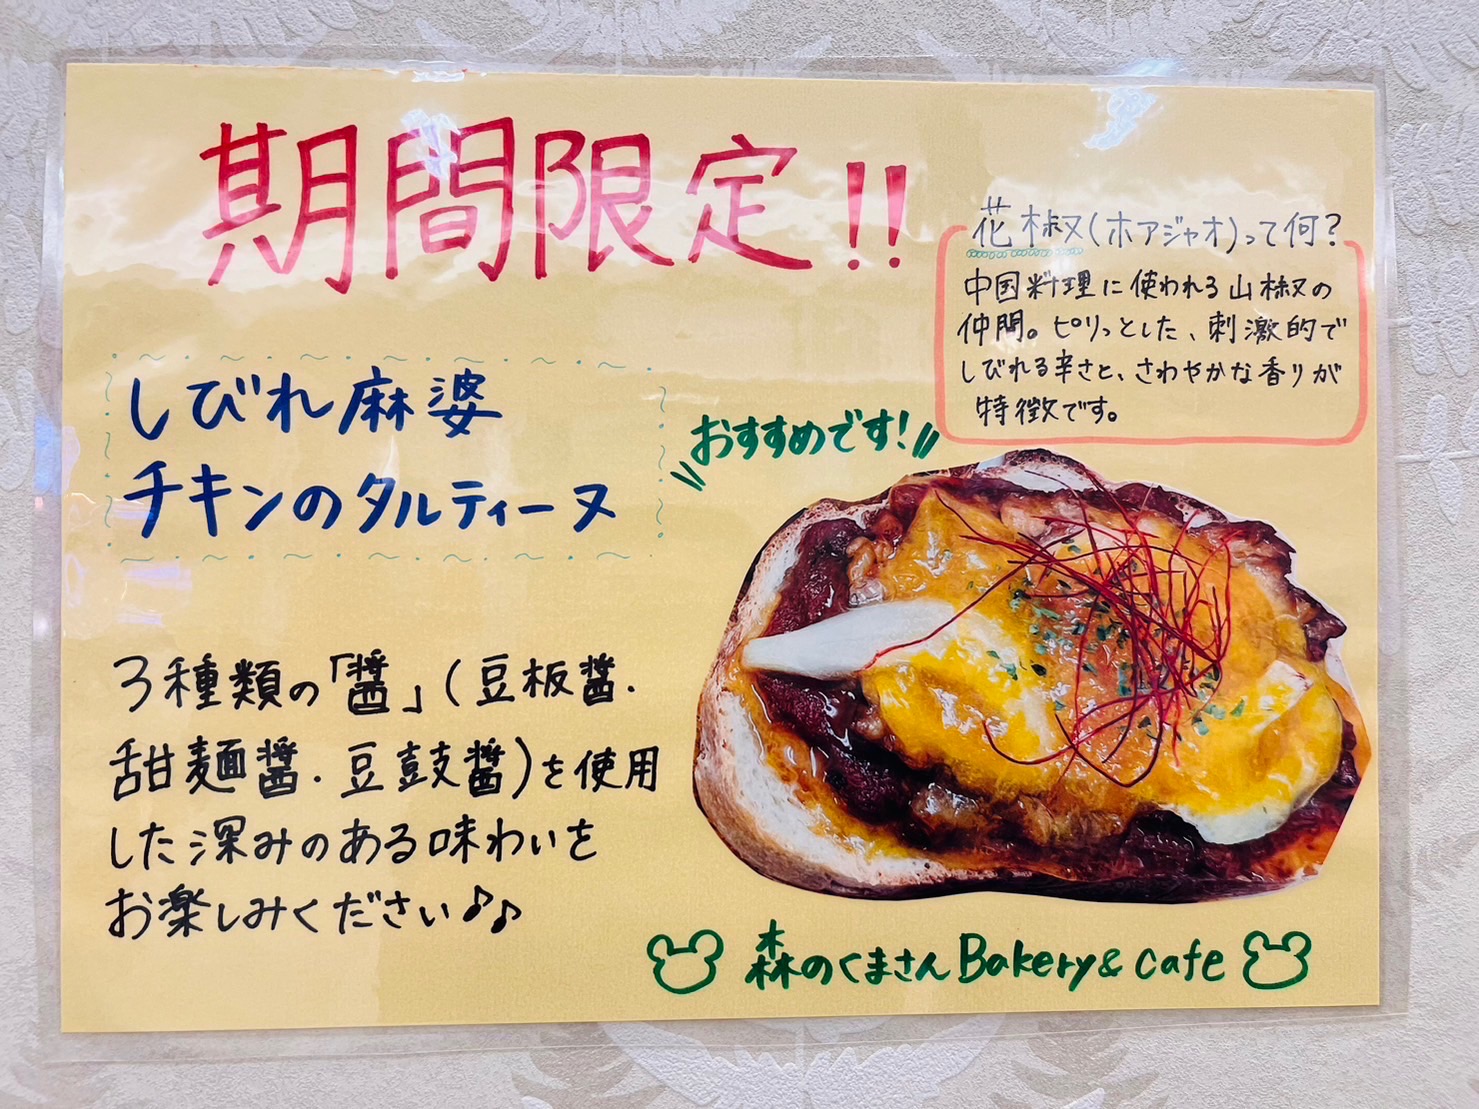 期間限定!!
花椒(ホアジャオ)って何?
中国料理に使われる山椒の
仲間。ピリっとした、刺激的で
しびれる辛さと、さわやかな香りが
特徴です。
しびれ麻婆
チキンのタルティーヌ
おすすめです!
3種類の「醤」(豆板醤・
甜麺醤・豆鼓醤)を使用
した深みのある味わいを
お楽しみください♪♪
森のくまさんBakery&cafe